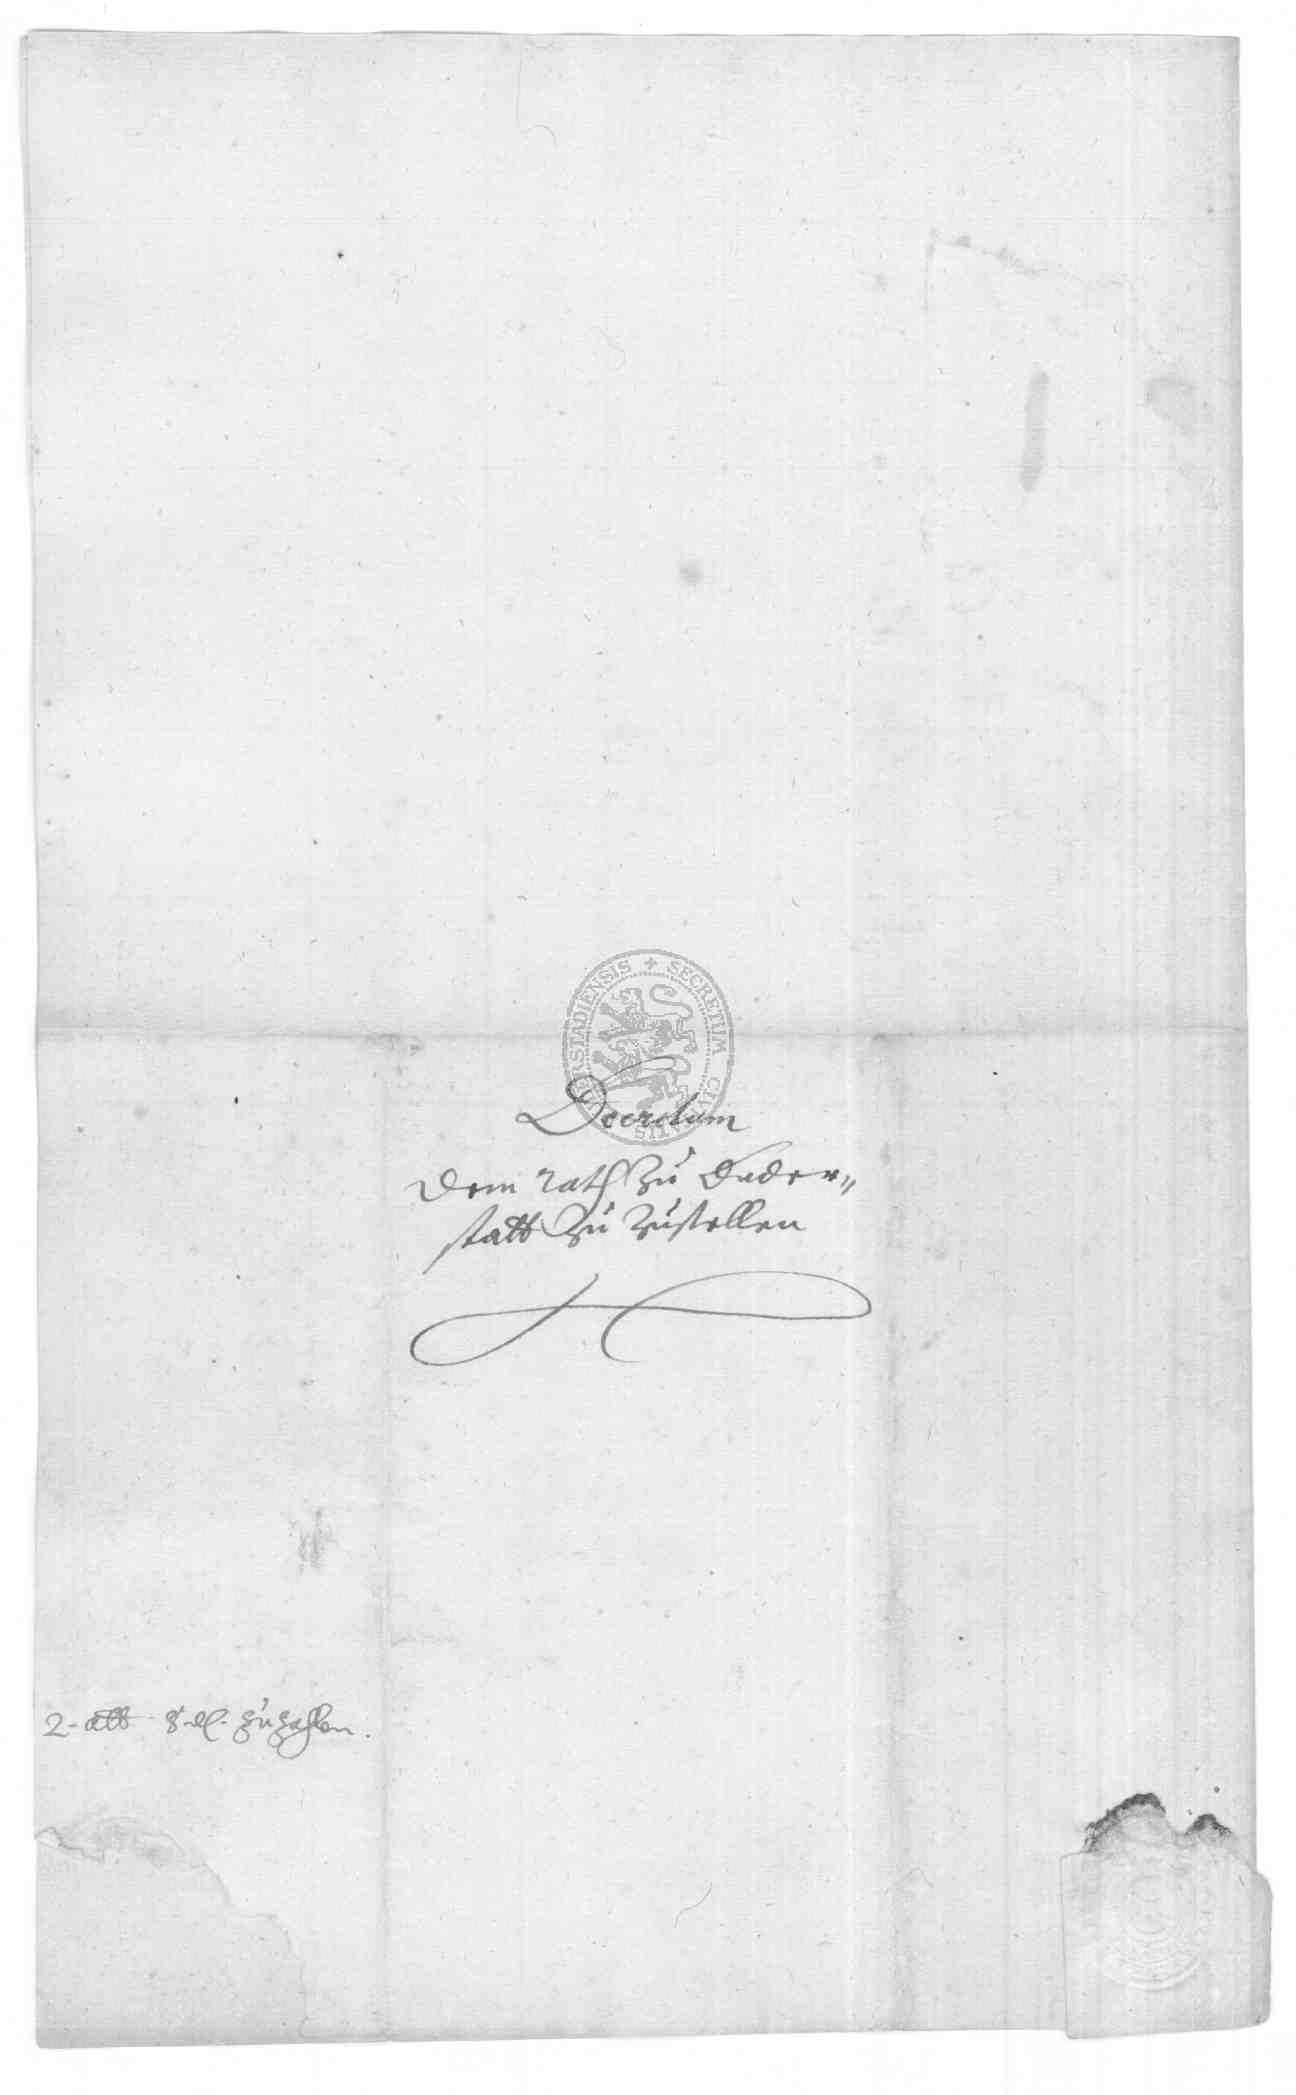 SECRETUM CIVITATIS DUDERSTADIENSIS
Decretum
Dem Rath zu Duder=
statt zu zustellen
2- att zuzahlen.